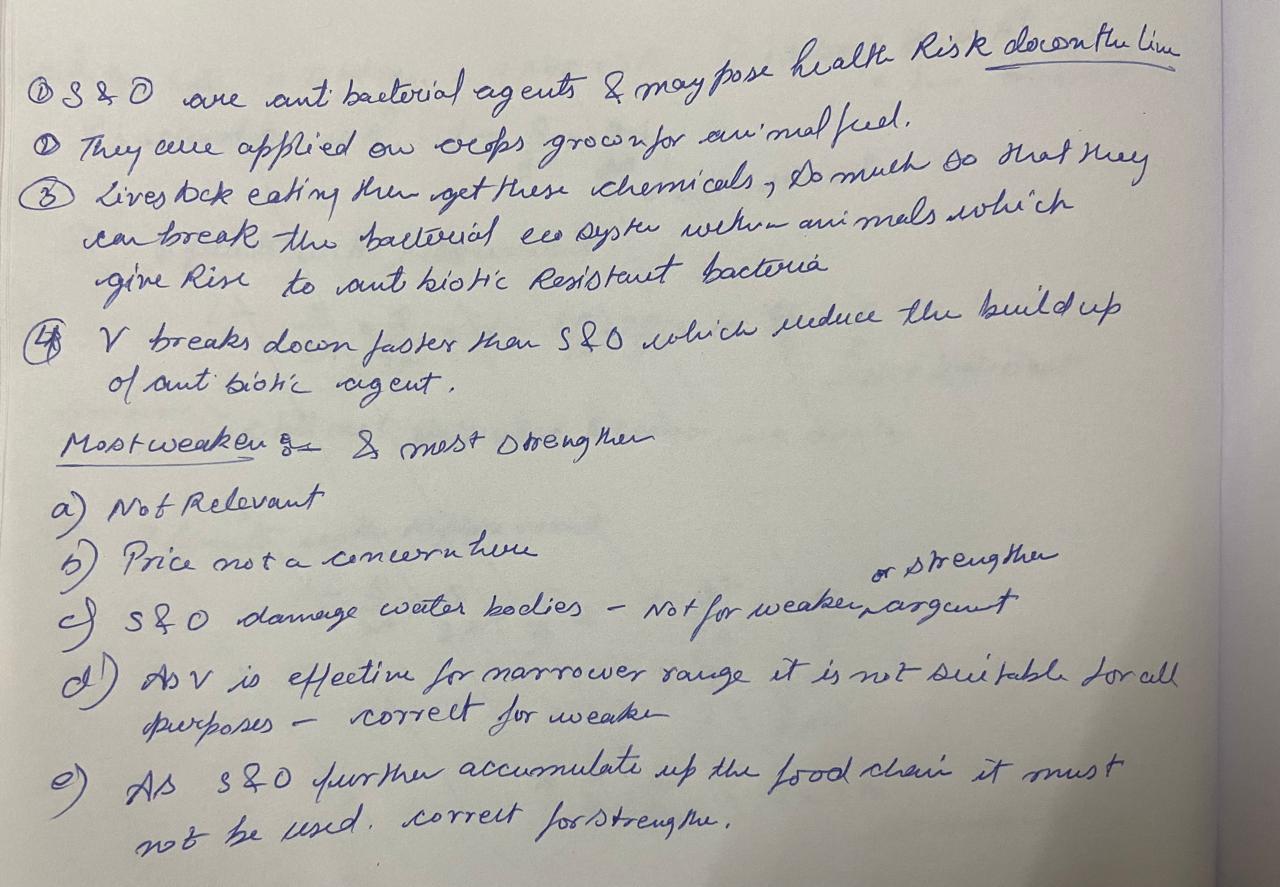 ① S & O are anti bacterial agents & may pose health Risk down the line
② They are applied on crops grown for animal feed.
③ Livestock eating them get these chemicals, so much so that they
can break the bacterial eco system within animals which
give Rise to antibiotic Resistant bacteria
④ V breaks down faster than S & O which reduce the buildup
of anti biotic agent.
Most weaken :- & most strengthen
a) Not Relevant
b) Price not a concern here
or strengthen
c) S & O damage water bodies - Not for weaken argument
d) As V is effective for narrower range it is not suitable for all
purposes - correct for weaken
e) As S & O further accumulate up the food chain it must
not be used. correct for strengthe.